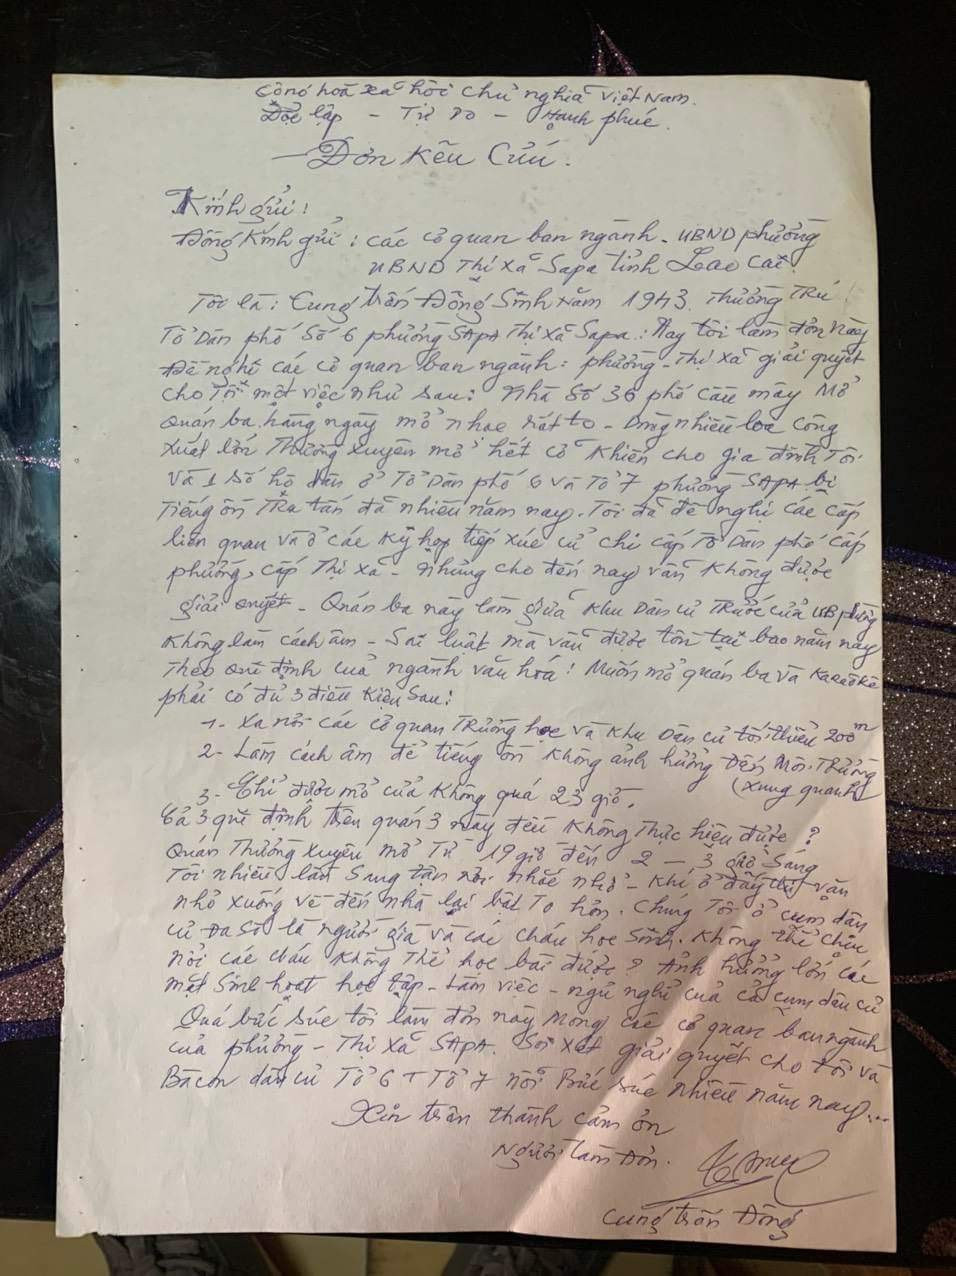 Cộng hoà xã hội chủ nghĩa Việt Nam.
Độc lập - Tự Do - Hạnh phúc.
- Đơn Kêu Cứu.
Kính gửi!
Đồng Kính gửi: các cơ quan ban ngành - UBND phường
UBND Thị xã Sapa tỉnh Lao Cai.
Tôi là: Cung Trần Đông Sinh Năm 1943. Thường Trú
Tổ Dân phố Số 6 phường SAPA Thị Xã Sapa: Nay tôi làm đơn này
Đề nghị các cơ quan ban ngành: phường - Thị xã giải quyết
cho Tôi một việc như sau: Nhà Số 36 phố Cầu mây Mở
quán ba hàng ngày mở nhạc rất to - Dùng nhiều loa Công
xuất lớn Thường xuyên mở hết cỡ Khiến cho gia đình Tôi
và 1 số hộ dân ở Tổ Dân phố 6 và Tổ 7 phường SAPA bị
Tiếng ồn Tra tấn đã nhiều năm nay. Tôi đã đề nghị các cấp
liên quan và ở các Kỳ họp tiếp xúc cử chi cấp Tổ Dân phố cấp
phường, cấp Thị Xã - Nhưng cho đến nay vẫn Không được
giải quyết - Quán ba này làm giữa Khu Dân cư Trước cửa UB phường
Không làm cách âm - Sai luật mà vẫn được tồn tại bao năm nay
Theo qui định của ngành văn hoá! Muốn mở quán ba và Karaoke
phải có đủ 3 điều Kiện Sau:
1- Xa nơi các cơ quan Trường học và Khu Dân cư tối thiểu 200m
2- Làm cách âm để tiếng ồn Không ảnh hưởng Đến Môi Trường
(xung quanh)
3- Chỉ được mở cửa Không quá 23 giờ.
Cả 3 qui định trên quán 3 này đều Không Thực hiện được?
Quán Thường xuyên mở Từ 19 giờ đến 2 - 3 giờ Sáng
Tôi nhiều lần Sang tận nơi nhắc nhở - Khi ở đấy thì vặn
nhỏ xuống về đến nhà lại bật To hơn. Chúng Tôi ở cụm dân
cư Đa Số là người già và các cháu học Sinh. Không thể chịu
nổi các cháu Không Thể học bài được? Ảnh hưởng lớn các
mặt Sinh hoạt học tập - Làm việc - ngủ nghỉ của cả cụm dân cư
Quá bức Súc tôi làm đơn này Mong các cơ quan ban ngành
của phường - Thị Xã SAPA. Soi xét giải quyết cho tôi và
Bà con dân cư Tổ 6 + Tổ 7 nỗi Bức Súc nhiều năm nay...
Xin trân thành cảm ơn
Người làm Đơn.
Cung Trần Đông